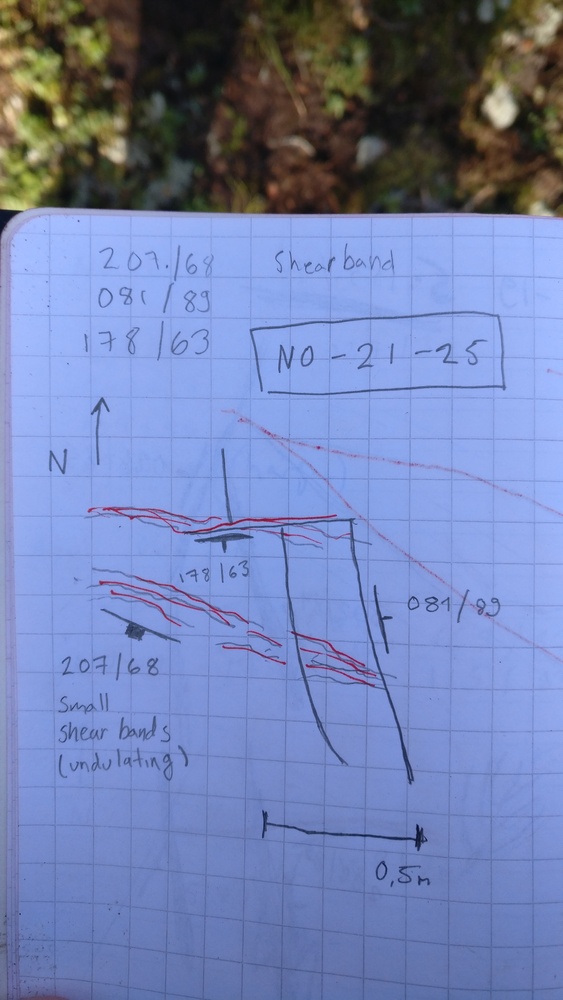 207./68 Shearband
081/89
178/63
NO-21-25
N
178/63
081/89
207/68
Small
shear bands
(undulating)
0,5m